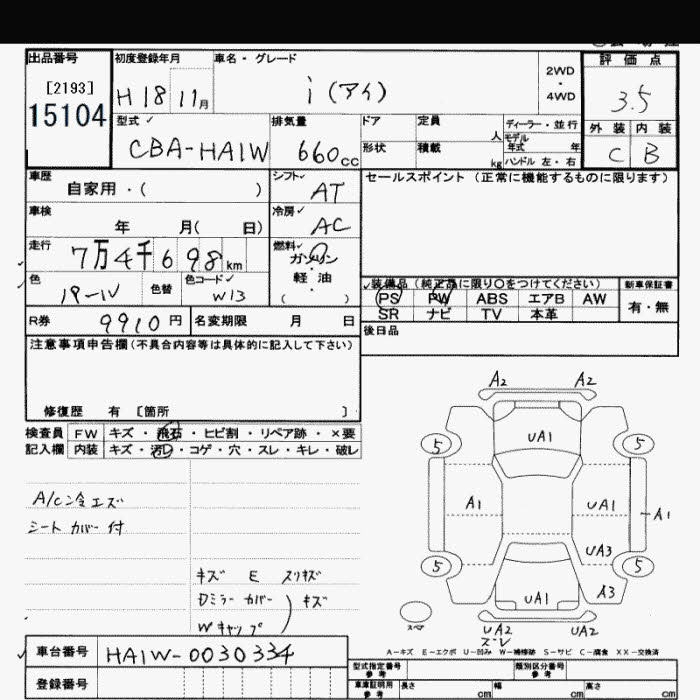 出品番号 初度登録年月 車名・グレード 評価点
[2193]
15104
H 18 11月 i (アイ) 2WD・4WD 3.5
型式 排気量 ドア 定員 人 ディーラー・並行
モデル年式 年
外装 内装
CBA-HA1W 660cc 形状 積載 kg ハンドル 左・右 C B
車歴 シフト セールスポイント (正常に機能するものに限ります)
自家用・( ) AT
車検 冷房
年 月( 日) AC
走行 燃料
7万4千698km ガソリン・軽油( )
色 色替 色コード 装備品 (純正品に限り○をつけてください) 新車保証書
パール W13 PS PW ABS エアB AW 有・無
SR ナビ TV 本革
R券 9910円 名変期限 月 日
後日品
注意事項申告欄(不具合内容等は具体的に記入して下さい)
修復歴 有 [箇所 ]
検査員 FW キズ・飛石・ヒビ割・リペア跡・×要
記入欄 内装 キズ・汚レ・コゲ・穴・スレ・キレ・破レ
A/C冷エズ
シートカバー付
キズ E スリキズ
Dミラーカバー
Wキャップ ) キズ
A2 A2
5 UA1 5
A1 UA1 A1
UA3
5 A3 5
UA1
スペア UA2 UA2
A-キズ E-エクボ U-凹み W-補修跡 S-サビ C-腐食 XX-交換済
車台番号 HA1W-0030334
登録番号
型式指定番号 参考 類別区分番号 参考
車庫証明用 参考 長さ cm 幅 cm 高さ cm